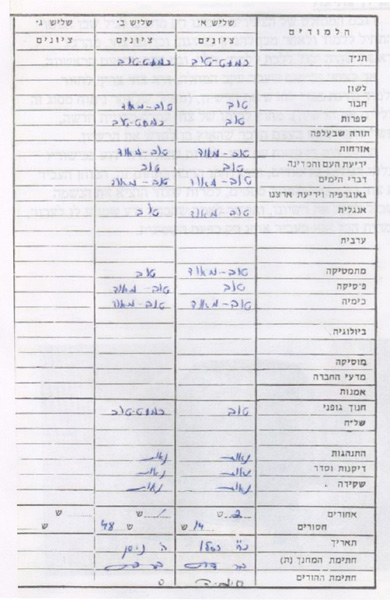 הלמודים שליש א׳ שליש ב׳ שליש ג׳
ציונים ציונים ציונים
תנ״ך כמעט-טוב כמעט-טוב
לשון
חבור טוב טוב-מאד
ספרות טוב כמעט-טוב
תורה שבעלפה
אזרחות טוב-מאוד טוב-מאוד
ידיעת העם והמדינה טוב טוב
דברי הימים טוב-מאוד טוב-מאוד
גאוגרפיה וידיעת ארצנו
אנגלית טוב-מאוד טוב
ערבית
מתמטיקה טוב-מאוד טוב
פיסיקה טוב טוב-מאוד
כימיה טוב-מאוד טוב-מאוד
ביולוגיה
מוסיקה
מדעי החברה
אמנות
חנוך גופני טוב כמעט-טוב
של״ח
התנהגות נאות נאות
דיקנות וסדר נאות נאות
שקידה נאות נאות
אחורים ש ש ש
חסורים 14 ש 48 ש ש
תאריך כ״ח כסלו ה׳ ניסן
חתימת המחנך (ת)
חתימת ההורים